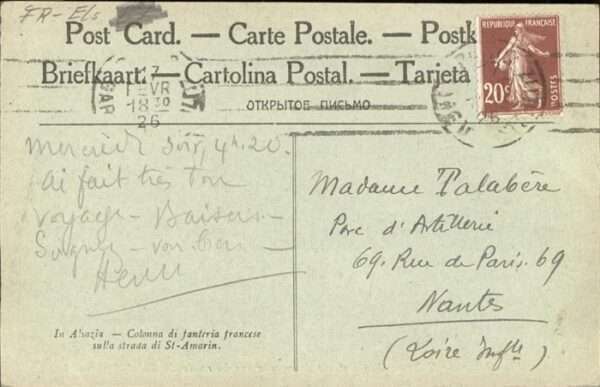 FR-Els
Post Card. — Carte Postale. — Postk
Briefkaart. — Cartolina Postal. — Tarjeta
ОТКРЫТОЕ ПИСЬМО
RÉPUBLIQUE FRANÇAISE
20c
GARE
17
FEVR
18 30
26
Mercredi soir, 4h.20.
Ai fait très bon
voyage - Baisers -
Soignez-vous bien -
Madame Palabère
Parc d'Artillerie
69. Rue de Paris. 69
Nantes
(Loire Infre)
In Alsazia — Colonna di fanteria francese
sulla strada di St-Amarin.